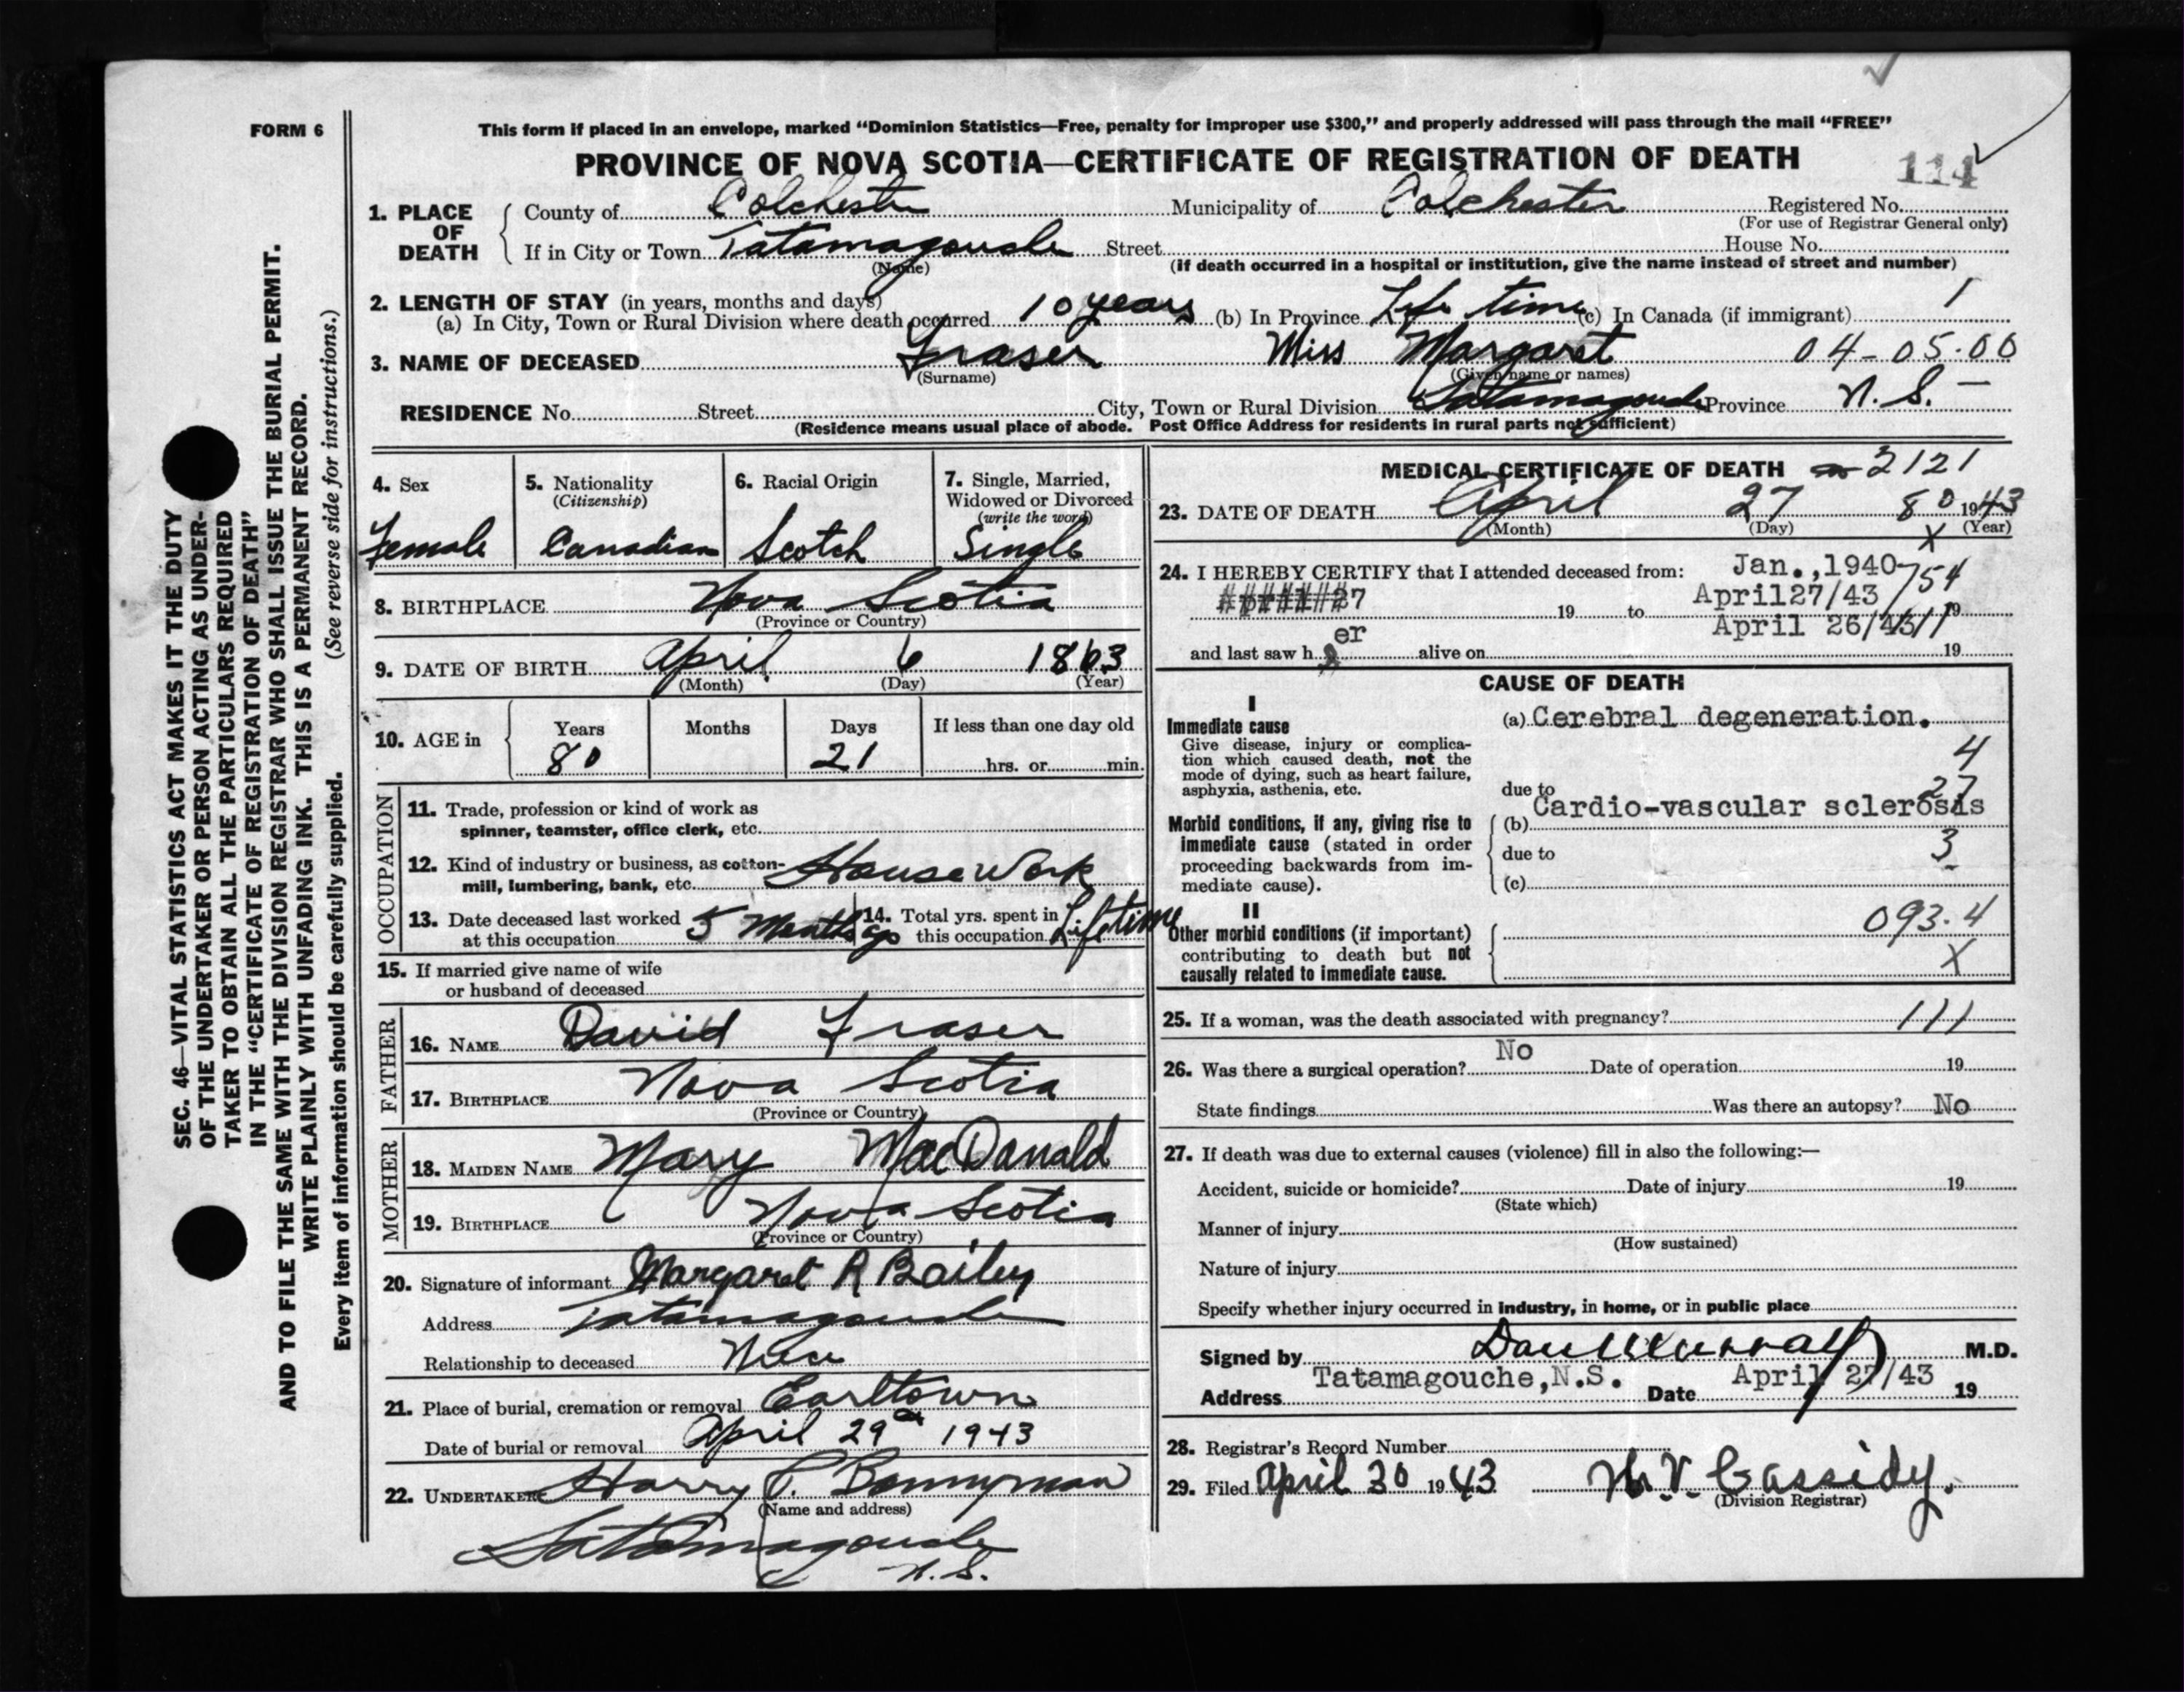 FORM 6
This form if placed in an envelope, marked “Dominion Statistics—Free, penalty for improper use $300,” and properly addressed will pass through the mail “FREE”
PROVINCE OF NOVA SCOTIA—CERTIFICATE OF REGISTRATION OF DEATH
114
1. PLACE OF DEATH
County of Colchester Municipality of Colchester Registered No.
(For use of Registrar General only)
If in City or Town Tatamagouche Street House No.
(Name) (If death occurred in a hospital or institution, give the name instead of street and number)
2. LENGTH OF STAY (in years, months and days)
(a) In City, Town or Rural Division where death occurred 10 years (b) In Province Life time (c) In Canada (if immigrant) 1
3. NAME OF DECEASED Fraser Miss Margaret 04-05.00
(Surname) (Given name or names)
RESIDENCE No. Street City, Town or Rural Division Tatamagouche Province N.S. —
(Residence means usual place of abode. Post Office Address for residents in rural parts not sufficient)
4. Sex
Female
5. Nationality
(Citizenship)
Canadian
6. Racial Origin
Scotch
7. Single, Married,
Widowed or Divorced
(write the word)
Single
8. BIRTHPLACE Nova Scotia
(Province or Country)
9. DATE OF BIRTH April 6 1863
(Month) (Day) (Year)
10. AGE in
Years Months Days If less than one day old
80 21 hrs. or min.
OCCUPATION
11. Trade, profession or kind of work as
spinner, teamster, office clerk, etc.
12. Kind of industry or business, as cotton-
mill, lumbering, bank, etc. House Work
13. Date deceased last worked
at this occupation 5 Months ago
14. Total yrs. spent in
this occupation Lifetime
15. If married give name of wife
or husband of deceased
FATHER
16. NAME David Fraser
17. BIRTHPLACE Nova Scotia
(Province or Country)
MOTHER
18. MAIDEN NAME Mary MacDonald
19. BIRTHPLACE Nova Scotia
(Province or Country)
20. Signature of informant Margaret R Bailey
Address Tatamagouche
Relationship to deceased Niece
21. Place of burial, cremation or removal Earltown
Date of burial or removal April 29th 1943
22. UNDERTAKER Harry P. Bonnyman
(Name and address)
Tatamagouche
N.S.
MEDICAL CERTIFICATE OF DEATH 2121
23. DATE OF DEATH April 27 80 1943
(Month) (Day) X (Year)
24. I HEREBY CERTIFY that I attended deceased from: Jan.,1940 754
27 19 to April27/43 19
April 26/43 111
and last saw her alive on 19
CAUSE OF DEATH
I
Immediate cause
Give disease, injury or complica-
tion which caused death, not the
mode of dying, such as heart failure,
asphyxia, asthenia, etc.
(a) Cerebral degeneration.
4
27
due to
Morbid conditions, if any, giving rise to
immediate cause (stated in order
proceeding backwards from im-
mediate cause).
(b) Cardio-vascular sclerosis
due to 3
(c)
II
Other morbid conditions (if important)
contributing to death but not
causally related to immediate cause.
093.4
X
25. If a woman, was the death associated with pregnancy? 111
26. Was there a surgical operation? No Date of operation 19
State findings Was there an autopsy? No
27. If death was due to external causes (violence) fill in also the following:—
Accident, suicide or homicide? Date of injury 19
(State which)
Manner of injury
(How sustained)
Nature of injury
Specify whether injury occurred in industry, in home, or in public place
Signed by Dan Murray M.D.
Address Tatamagouche,N.S. Date April 27/43 19
28. Registrar's Record Number
29. Filed April 30 1943 Cassidy.
(Division Registrar)
SEC. 46—VITAL STATISTICS ACT MAKES IT THE DUTY
OF THE UNDERTAKER OR PERSON ACTING AS UNDER-
TAKER TO OBTAIN ALL THE PARTICULARS REQUIRED
IN THE “CERTIFICATE OF REGISTRATION OF DEATH”
AND TO FILE THE SAME WITH THE DIVISION REGISTRAR WHO SHALL ISSUE THE BURIAL PERMIT.
WRITE PLAINLY WITH UNFADING INK. THIS IS A PERMANENT RECORD.
Every item of information should be carefully supplied. (See reverse side for instructions.)